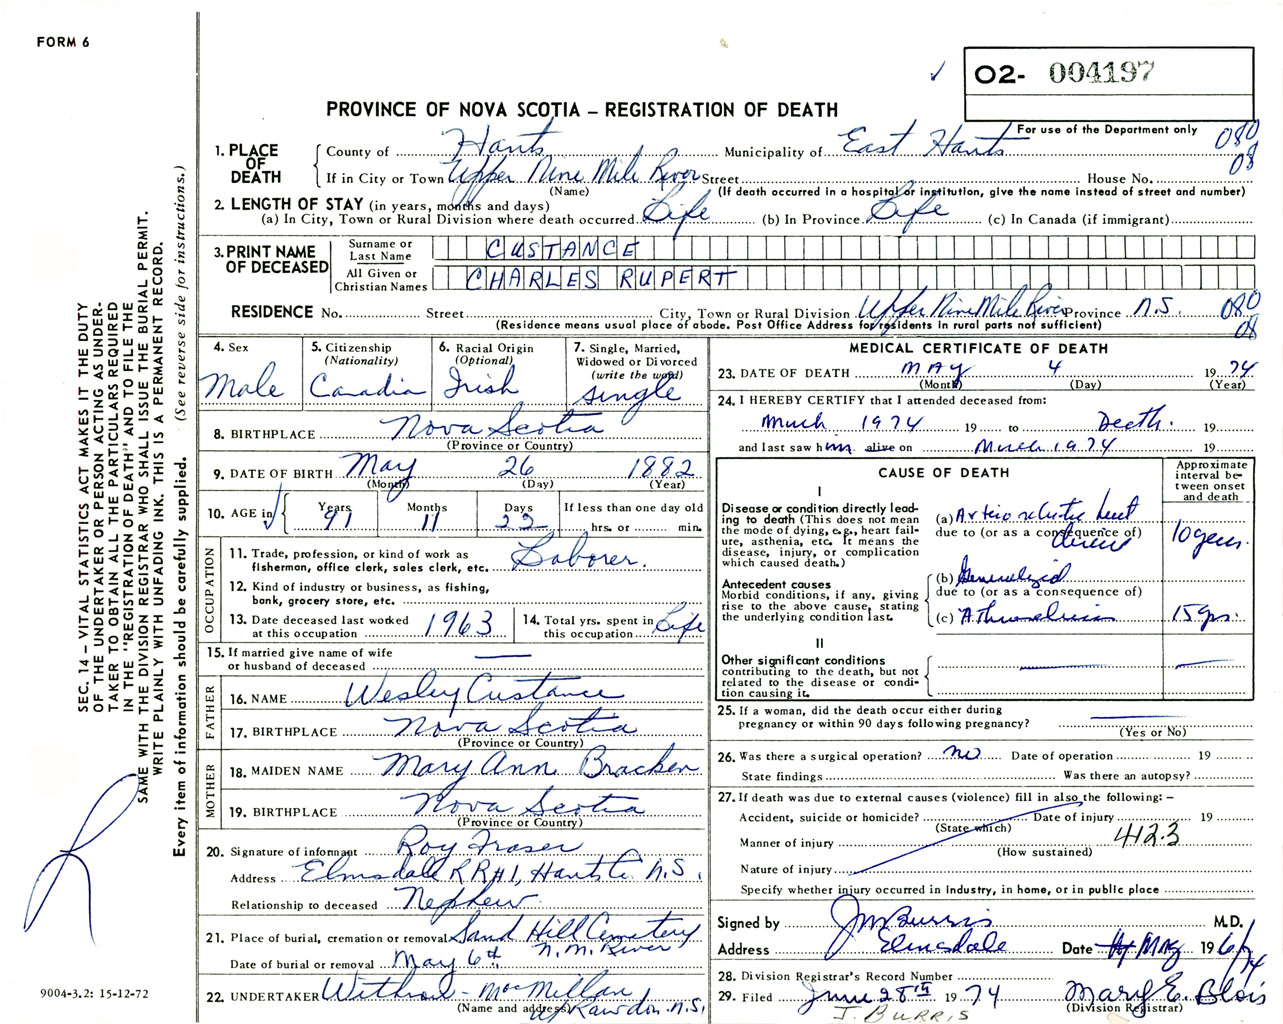 FORM 6
O2- 004197
PROVINCE OF NOVA SCOTIA – REGISTRATION OF DEATH
For use of the Department only
080
08
1. PLACE OF DEATH
County of Hants Municipality of East Hants
If in City or Town Upper Nine Mile River Street House No.
(Name) (If death occurred in a hospital or institution, give the name instead of street and number)
2. LENGTH OF STAY (in years, months and days)
(a) In City, Town or Rural Division where death occurred Life (b) In Province Life (c) In Canada (if immigrant)
3. PRINT NAME OF DECEASED
Surname or Last Name CUSTANCE
All Given or Christian Names CHARLES RUPERT
RESIDENCE No. Street City, Town or Rural Division Upper Nine Mile River Province N.S. 080
08
(Residence means usual place of abode. Post Office Address for residents in rural parts not sufficient)
4. Sex
Male
5. Citizenship
(Nationality)
Canadia
6. Racial Origin
(Optional)
Irish
7. Single, Married,
Widowed or Divorced
(write the word)
single
8. BIRTHPLACE Nova Scotia
(Province or Country)
9. DATE OF BIRTH May 26 1882
(Month) (Day) (Year)
10. AGE in
Years 91
Months 11
Days 22
If less than one day old
hrs. or min.
OCCUPATION
11. Trade, profession, or kind of work as
fisherman, office clerk, sales clerk, etc. Laborer.
12. Kind of industry or business, as fishing,
bank, grocery store, etc.
13. Date deceased last worked
at this occupation 1963
14. Total yrs. spent in
this occupation Life
15. If married give name of wife
or husband of deceased
FATHER
16. NAME Wesley Custance
17. BIRTHPLACE Nova Scotia
(Province or Country)
MOTHER
18. MAIDEN NAME Mary Ann Bracken
19. BIRTHPLACE Nova Scotia
(Province or Country)
20. Signature of informant Roy Fraser
Address Elmsdale RR#1, Hants Co N.S.
Relationship to deceased Nephew
21. Place of burial, cremation or removal Sand Hill Cemetery
N.M. River
Date of burial or removal May 6th
22. UNDERTAKER Withrow - MacMillan
(Name and address) Up Rawdon N.S.
MEDICAL CERTIFICATE OF DEATH
23. DATE OF DEATH MAY 4 1974
(Month) (Day) (Year)
24. I HEREBY CERTIFY that I attended deceased from:
March 1974 19 to Death. 19
and last saw him alive on March 1974 19
CAUSE OF DEATH
Approximate
interval be-
tween onset
and death
I
Disease or condition directly lead-
ing to death (This does not mean
the mode of dying, e.g., heart fail-
ure, asthenia, etc. It means the
disease, injury, or complication
which caused death.)
(a) Arteriosclerotic heart
due to (or as a consequence of)
disease
10 years.
Antecedent causes
Morbid conditions, if any, giving
rise to the above cause, stating
the underlying condition last.
(b) Generalized
due to (or as a consequence of)
(c) Atherosclerosis
15 yrs.
II
Other significant conditions
contributing to the death, but not
related to the disease or condi-
tion causing it.
25. If a woman, did the death occur either during
pregnancy or within 90 days following pregnancy?
(Yes or No)
26. Was there a surgical operation? no Date of operation 19
State findings Was there an autopsy?
27. If death was due to external causes (violence) fill in also the following: –
Accident, suicide or homicide? Date of injury 19
(State which)
Manner of injury 4123
(How sustained)
Nature of injury
Specify whether injury occurred in industry, in home, or in public place
Signed by JM Burris M.D.
Address Elmsdale Date 4 May 196/74
28. Division Registrar's Record Number
29. Filed June 28th 1974 Mary E. Blois
(Division Registrar)
J. BURRIS
SEC. 14 – VITAL STATISTICS ACT MAKES IT THE DUTY
OF THE UNDERTAKER OR PERSON ACTING AS UNDER-
TAKER TO OBTAIN ALL THE PARTICULARS REQUIRED
IN THE "REGISTRATION OF DEATH" AND TO FILE THE
SAME WITH THE DIVISION REGISTRAR WHO SHALL ISSUE THE BURIAL PERMIT.
WRITE PLAINLY WITH UNFADING INK. THIS IS A PERMANENT RECORD.
Every item of information should be carefully supplied. (See reverse side for instructions.)
9004-3.2: 15-12-72